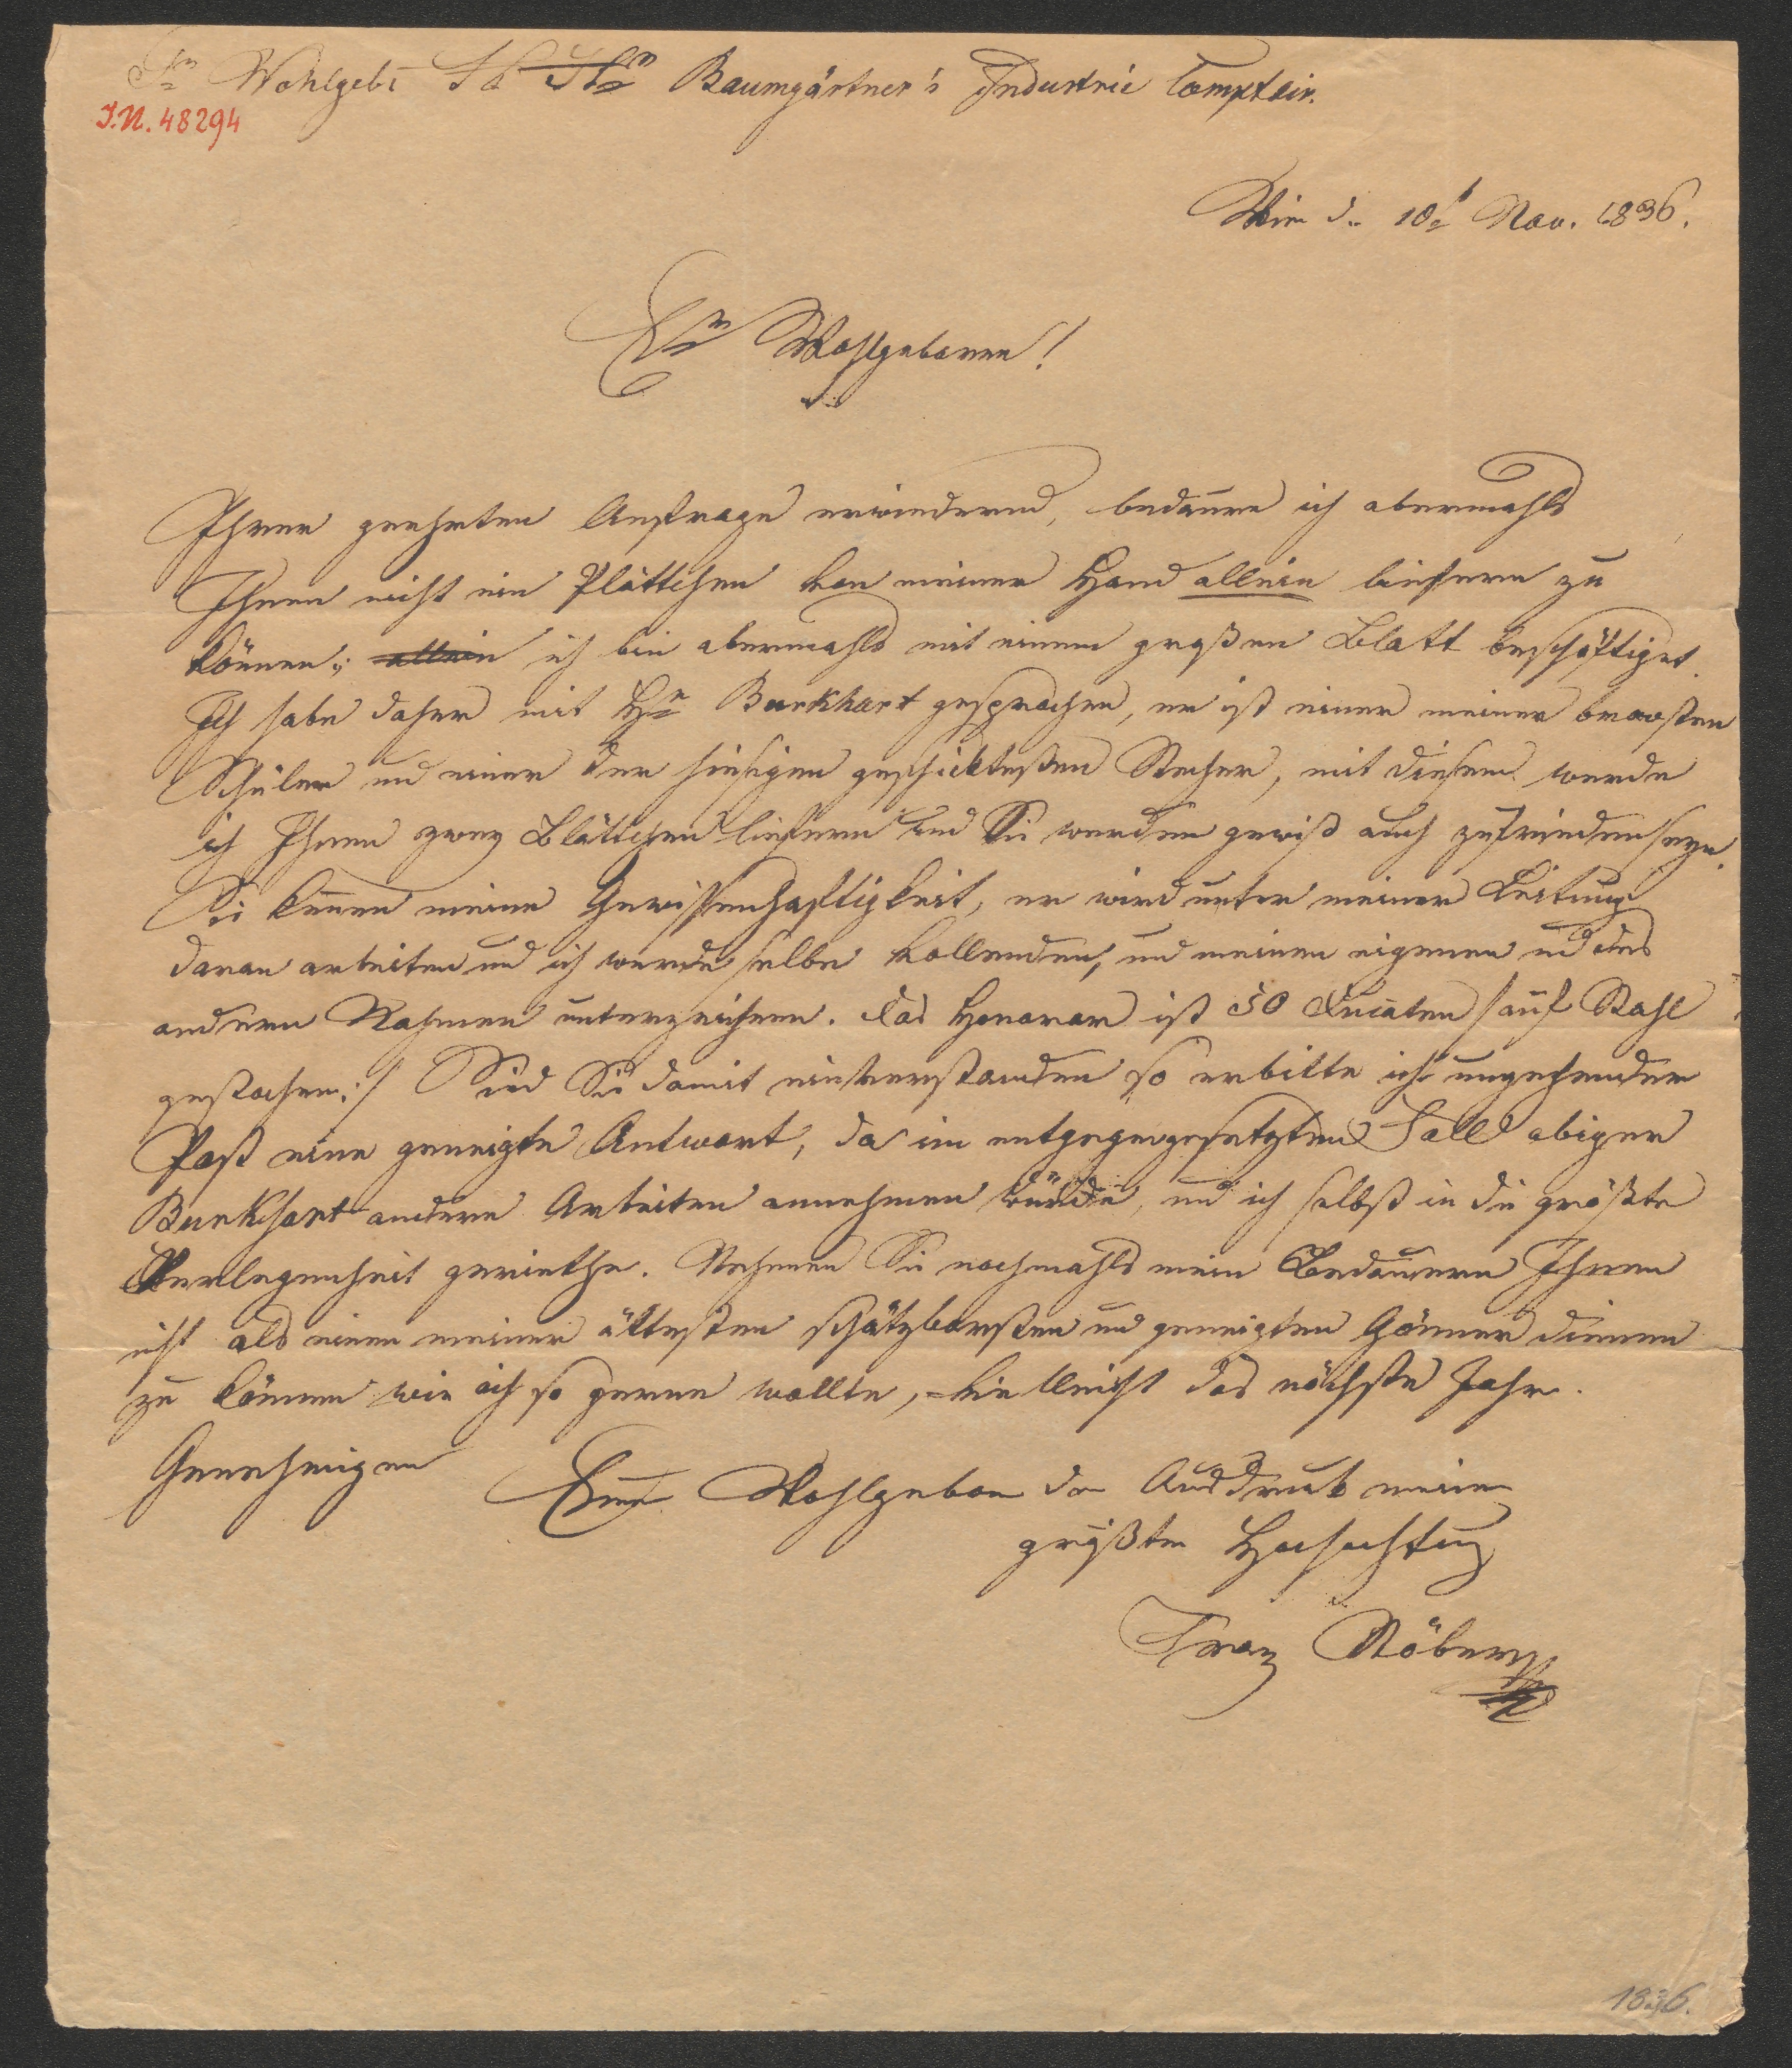 Sr Wohlgeb. Baumgärtner's Industrie Comptoir.
I.N. 48294
Wien d. 10t Nov. 1836.
Er Wohlgeboren!
Ihrer geehrten Anfrage erwiedernd, bedaure ich abermahls
Ihnen nicht ein Plättchen von meiner Hand allein liefern zu
können; allein ich bin abermahls mit einem großen Blatt beschäftiget.
Ich habe daher mit Hr Burkhart gesprochen, er ist einer meiner bravsten
Schüler und einer der hiesigen geschicktesten Stecher, mit diesem werde
ich Ihnen zwey Blättchen liefern und Sie werden gewiß auch zufrieden seyn.
Sie kennen meine Gewissenhaftigkeit, er wird unter meiner Leitung
daran arbeiten und ich werde selbe vollenden, und meinen eigenen und des
andern Nahmen unterzeichnen. Das Honorar ist 50 Ducaten /auf Stahl
gestochen:/ Sind Sie damit einverstanden so erbitte ich umgehender
Post eine geneigte Antwort, da im entgegengesetzten Fall obiger
Burkhart andere Arbeiten annehmen würde, und ich selbst in die größte
Verlegenheit geriethe. Nehmen Sie nochmahls mein Bedauern Ihnen
nicht als einen meiner ältesten schätzbarsten und geneigten Gönner dienen
zu können wie ich so gerne wollte, vielleicht das nächste Jahr.
Genehmigen Euer Wohlgeboren den Ausdruck meiner
größten Hochachtung
Franz Stöber
1836.